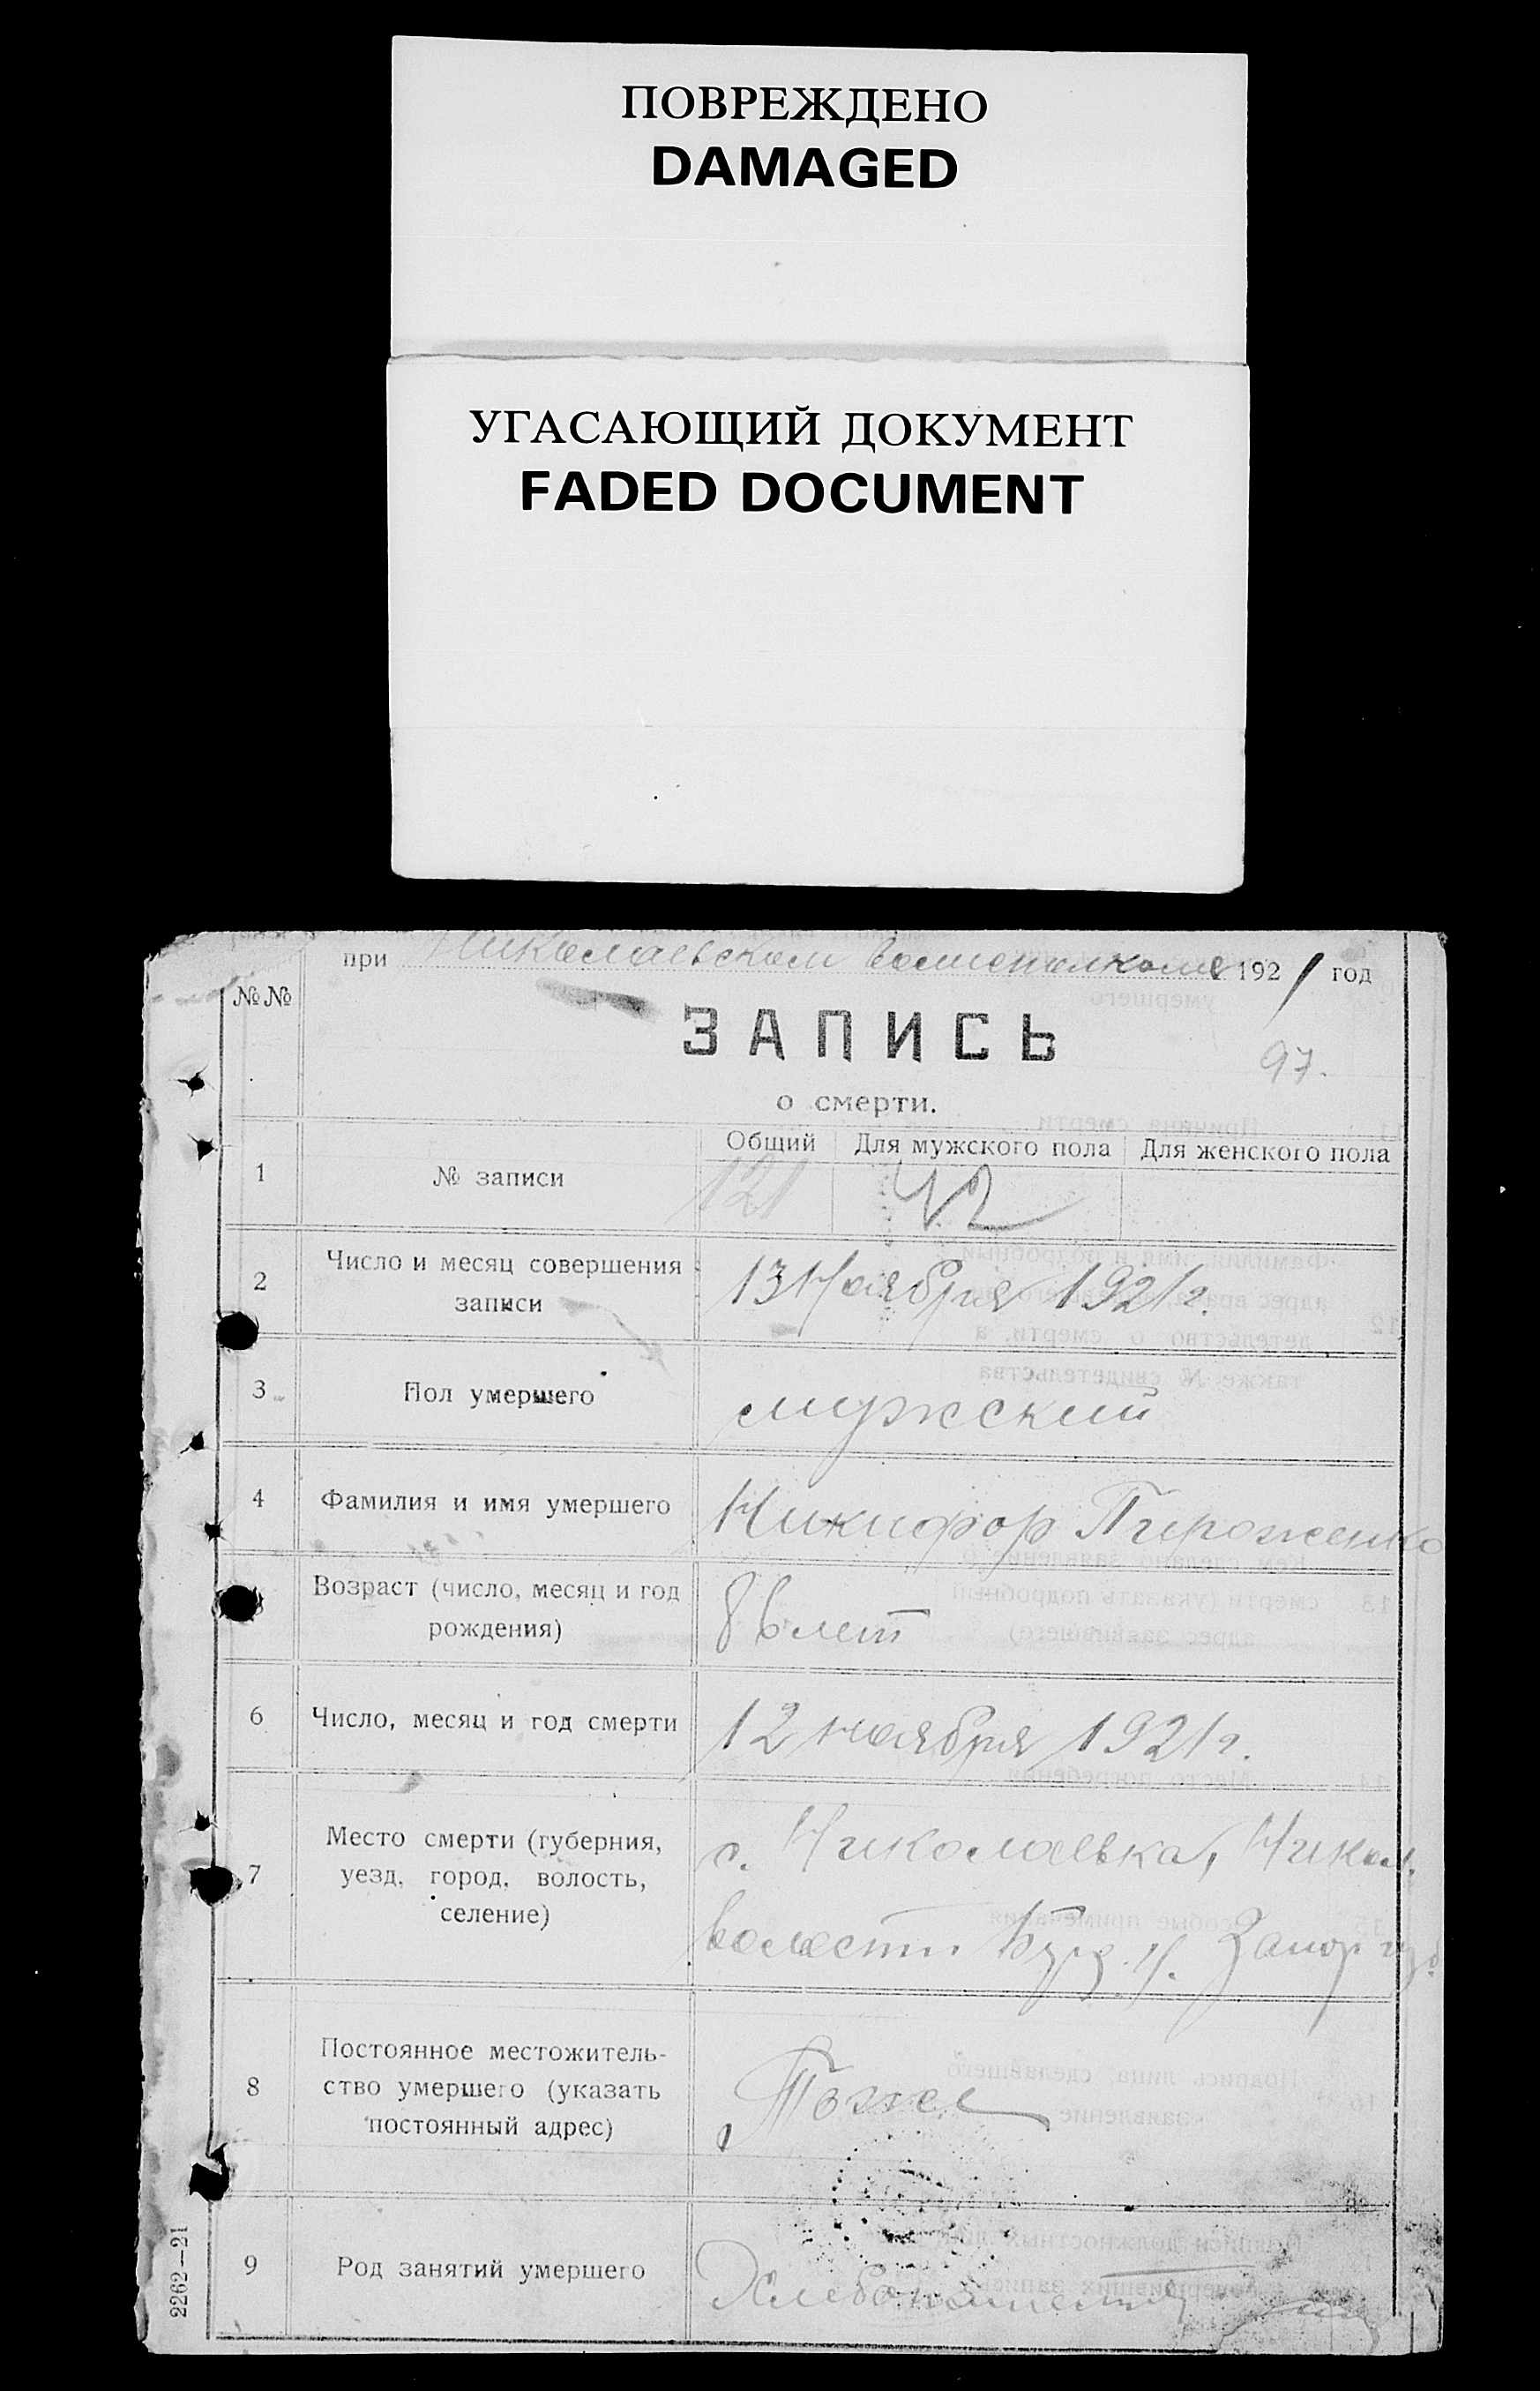 ПОВРЕЖДЕНО
DAMAGED
УГАСАЮЩИЙ ДОКУМЕНТ
FADED DOCUMENT
при Николаевском волисполкоме 1921 год
№№
ЗАПИСЬ
97.
о смерти.
Общий Для мужского пола Для женского пола
1 № записи 121 42
2 Число и месяц совершения
записи
13 Ноября 1921 г.
3 Пол умершего мужский
4 Фамилия и имя умершего Никифор Пироженко
Возраст (число, месяц и год
рождения)
86 лет
6 Число, месяц и год смерти 12 ноября 1921 г.
7 Место смерти (губерния,
уезд, город, волость,
селение)
с. Николаевка, Никол.
волости Запор губ
8 Постоянное местожитель-
ство умершего (указать
постоянный адрес)
Тоже
9 Род занятий умершего
2262—21